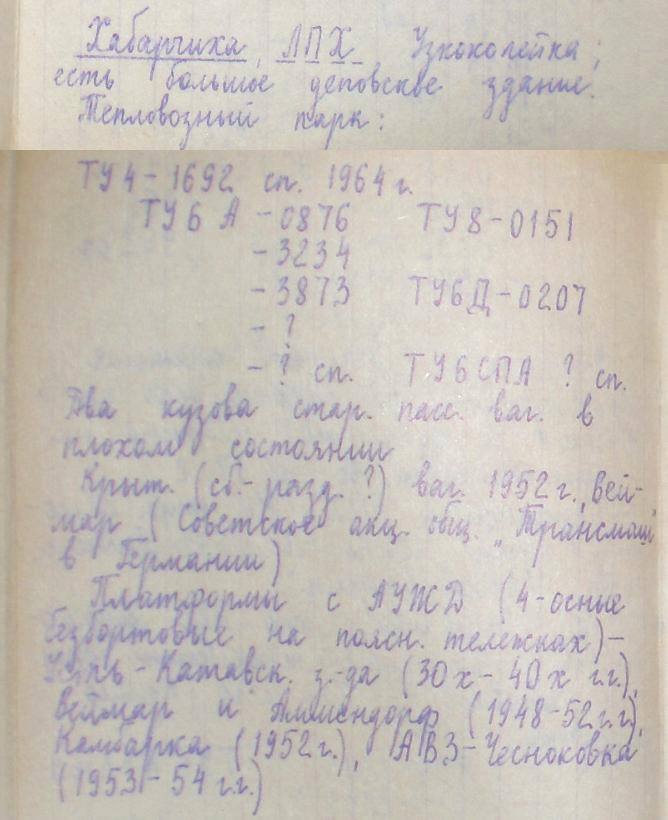 Хабарчиха, ЛПХ. Узкоколейка;
есть большое деповское здание.
Тепловозный парк:
ТУ4-1692 сп. 1964 г.
ТУ6А -0876 ТУ8-0151
-3234
-3873 ТУ6Д-0207
- ?
- ? сп. ТУ6СПА ? сп.
Два кузова стар. пасс. ваг. в
плохом состоянии
Крыт. (сб.-разд. ?) ваг. 1952 г. „Вей-
мар (Советское акц. общ. „Трансмаш"
в Германии)
Платформы с АУЖД (4-осные
безбортовые на поясн. тележках) -
Усть-Катавск. з-да (30х - 40х г.г.),
Веймар и Аммендорф (1948-52 г.г.),
Камбарка (1952 г.), АВЗ-Чесноковка
(1953 - 54 г.г.)